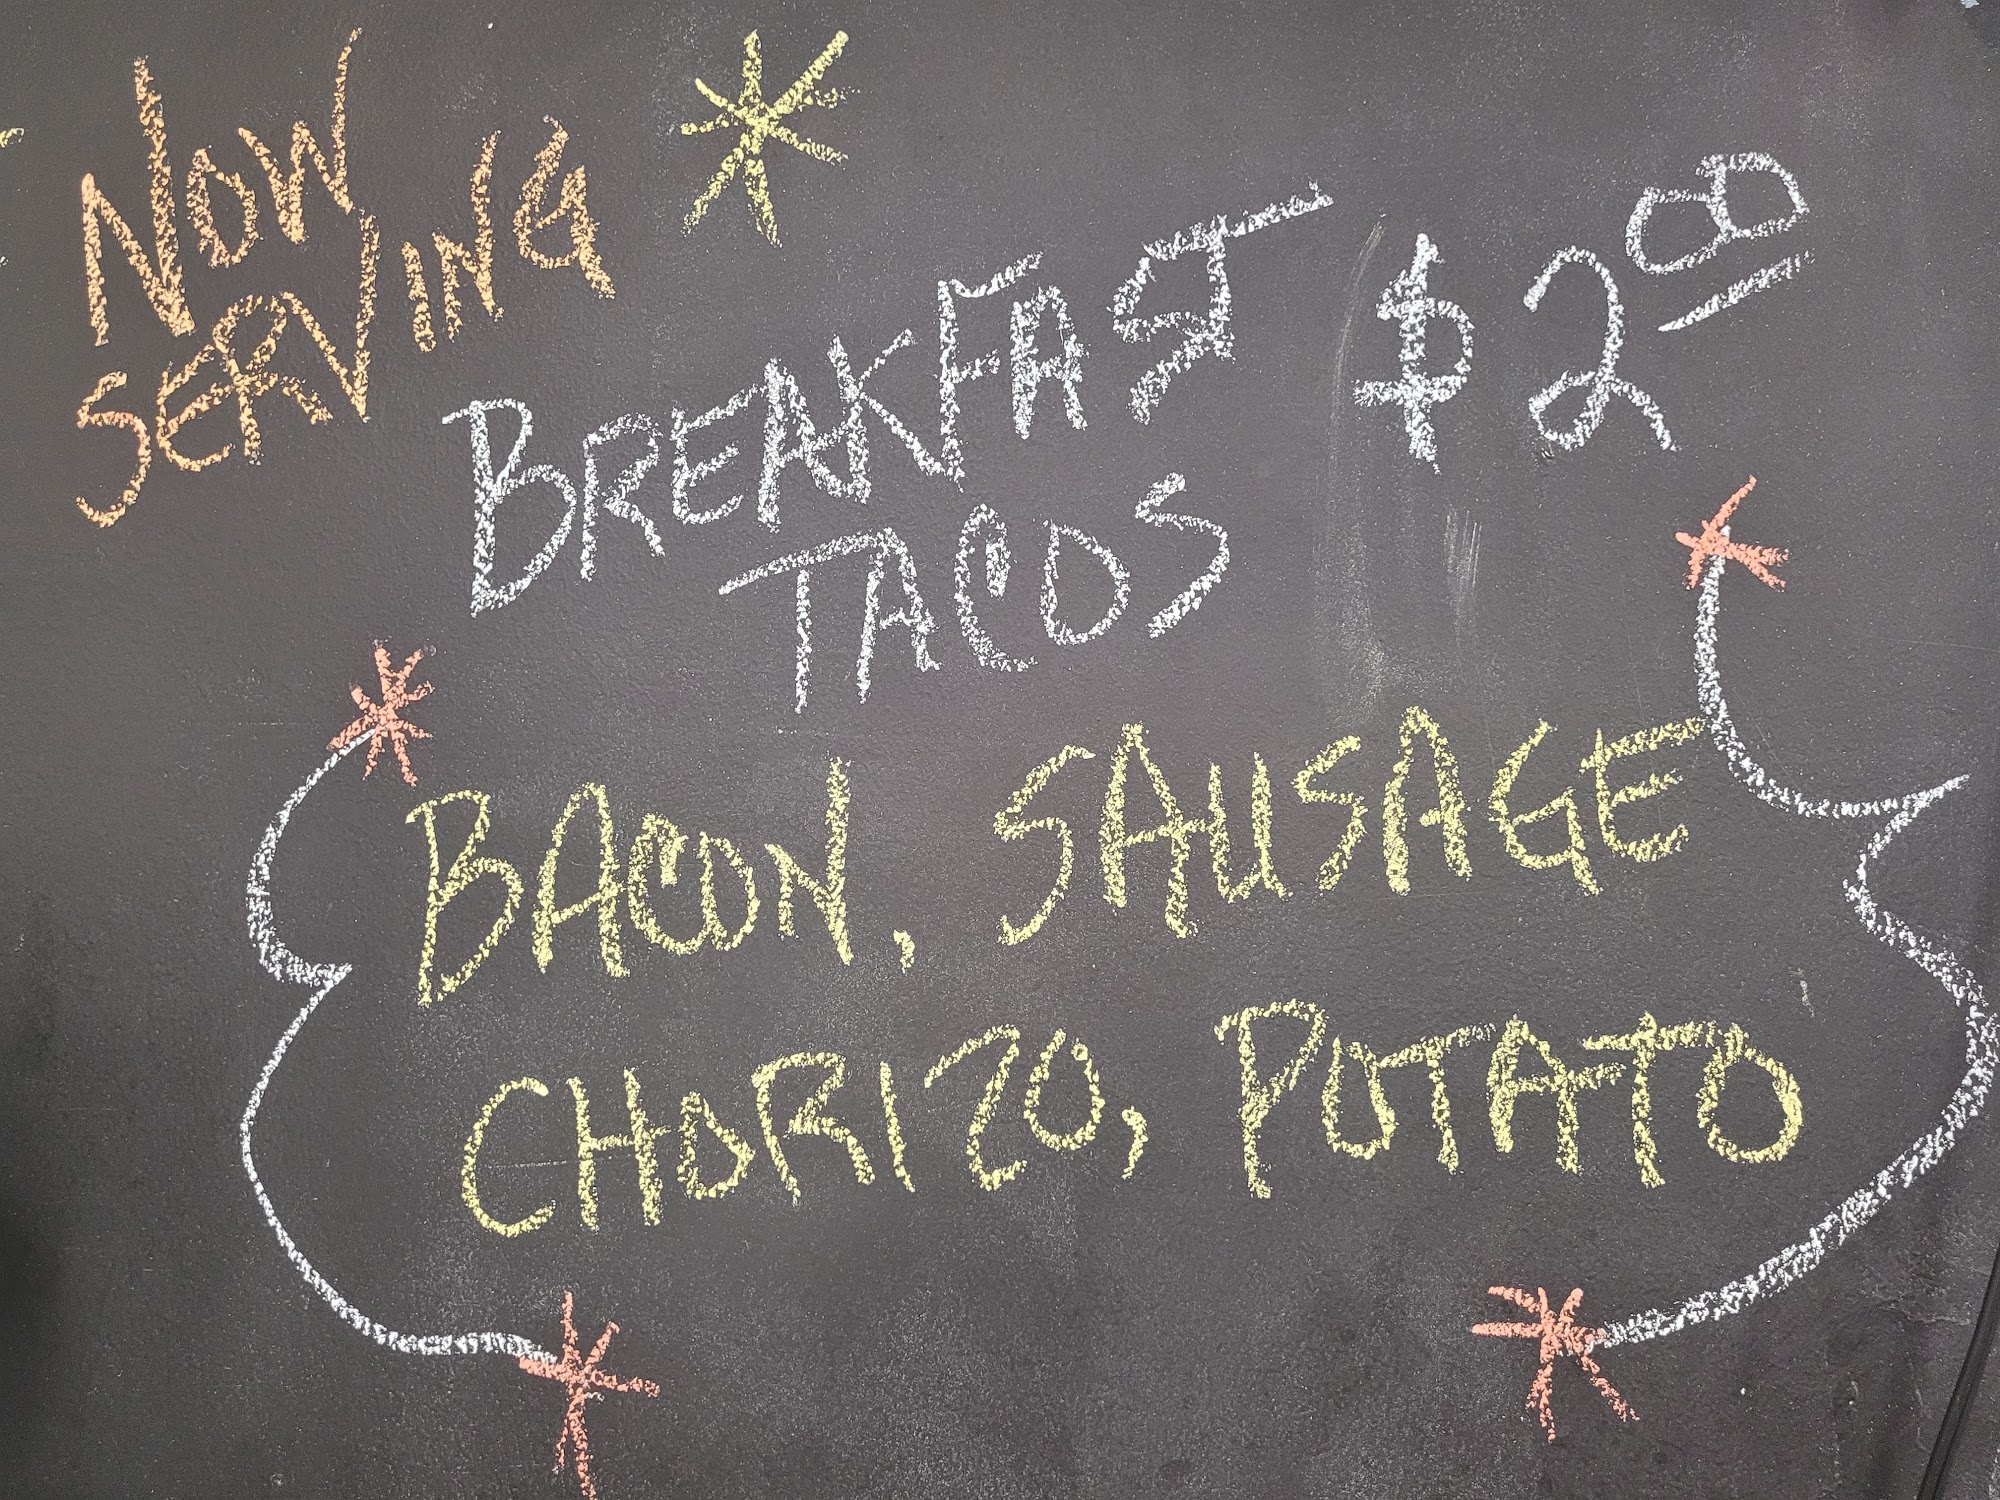 NOW
SERVING
BREAKFAST $2.00
TACOS
BACON, SAUSAGE
CHORIZO, POTATO